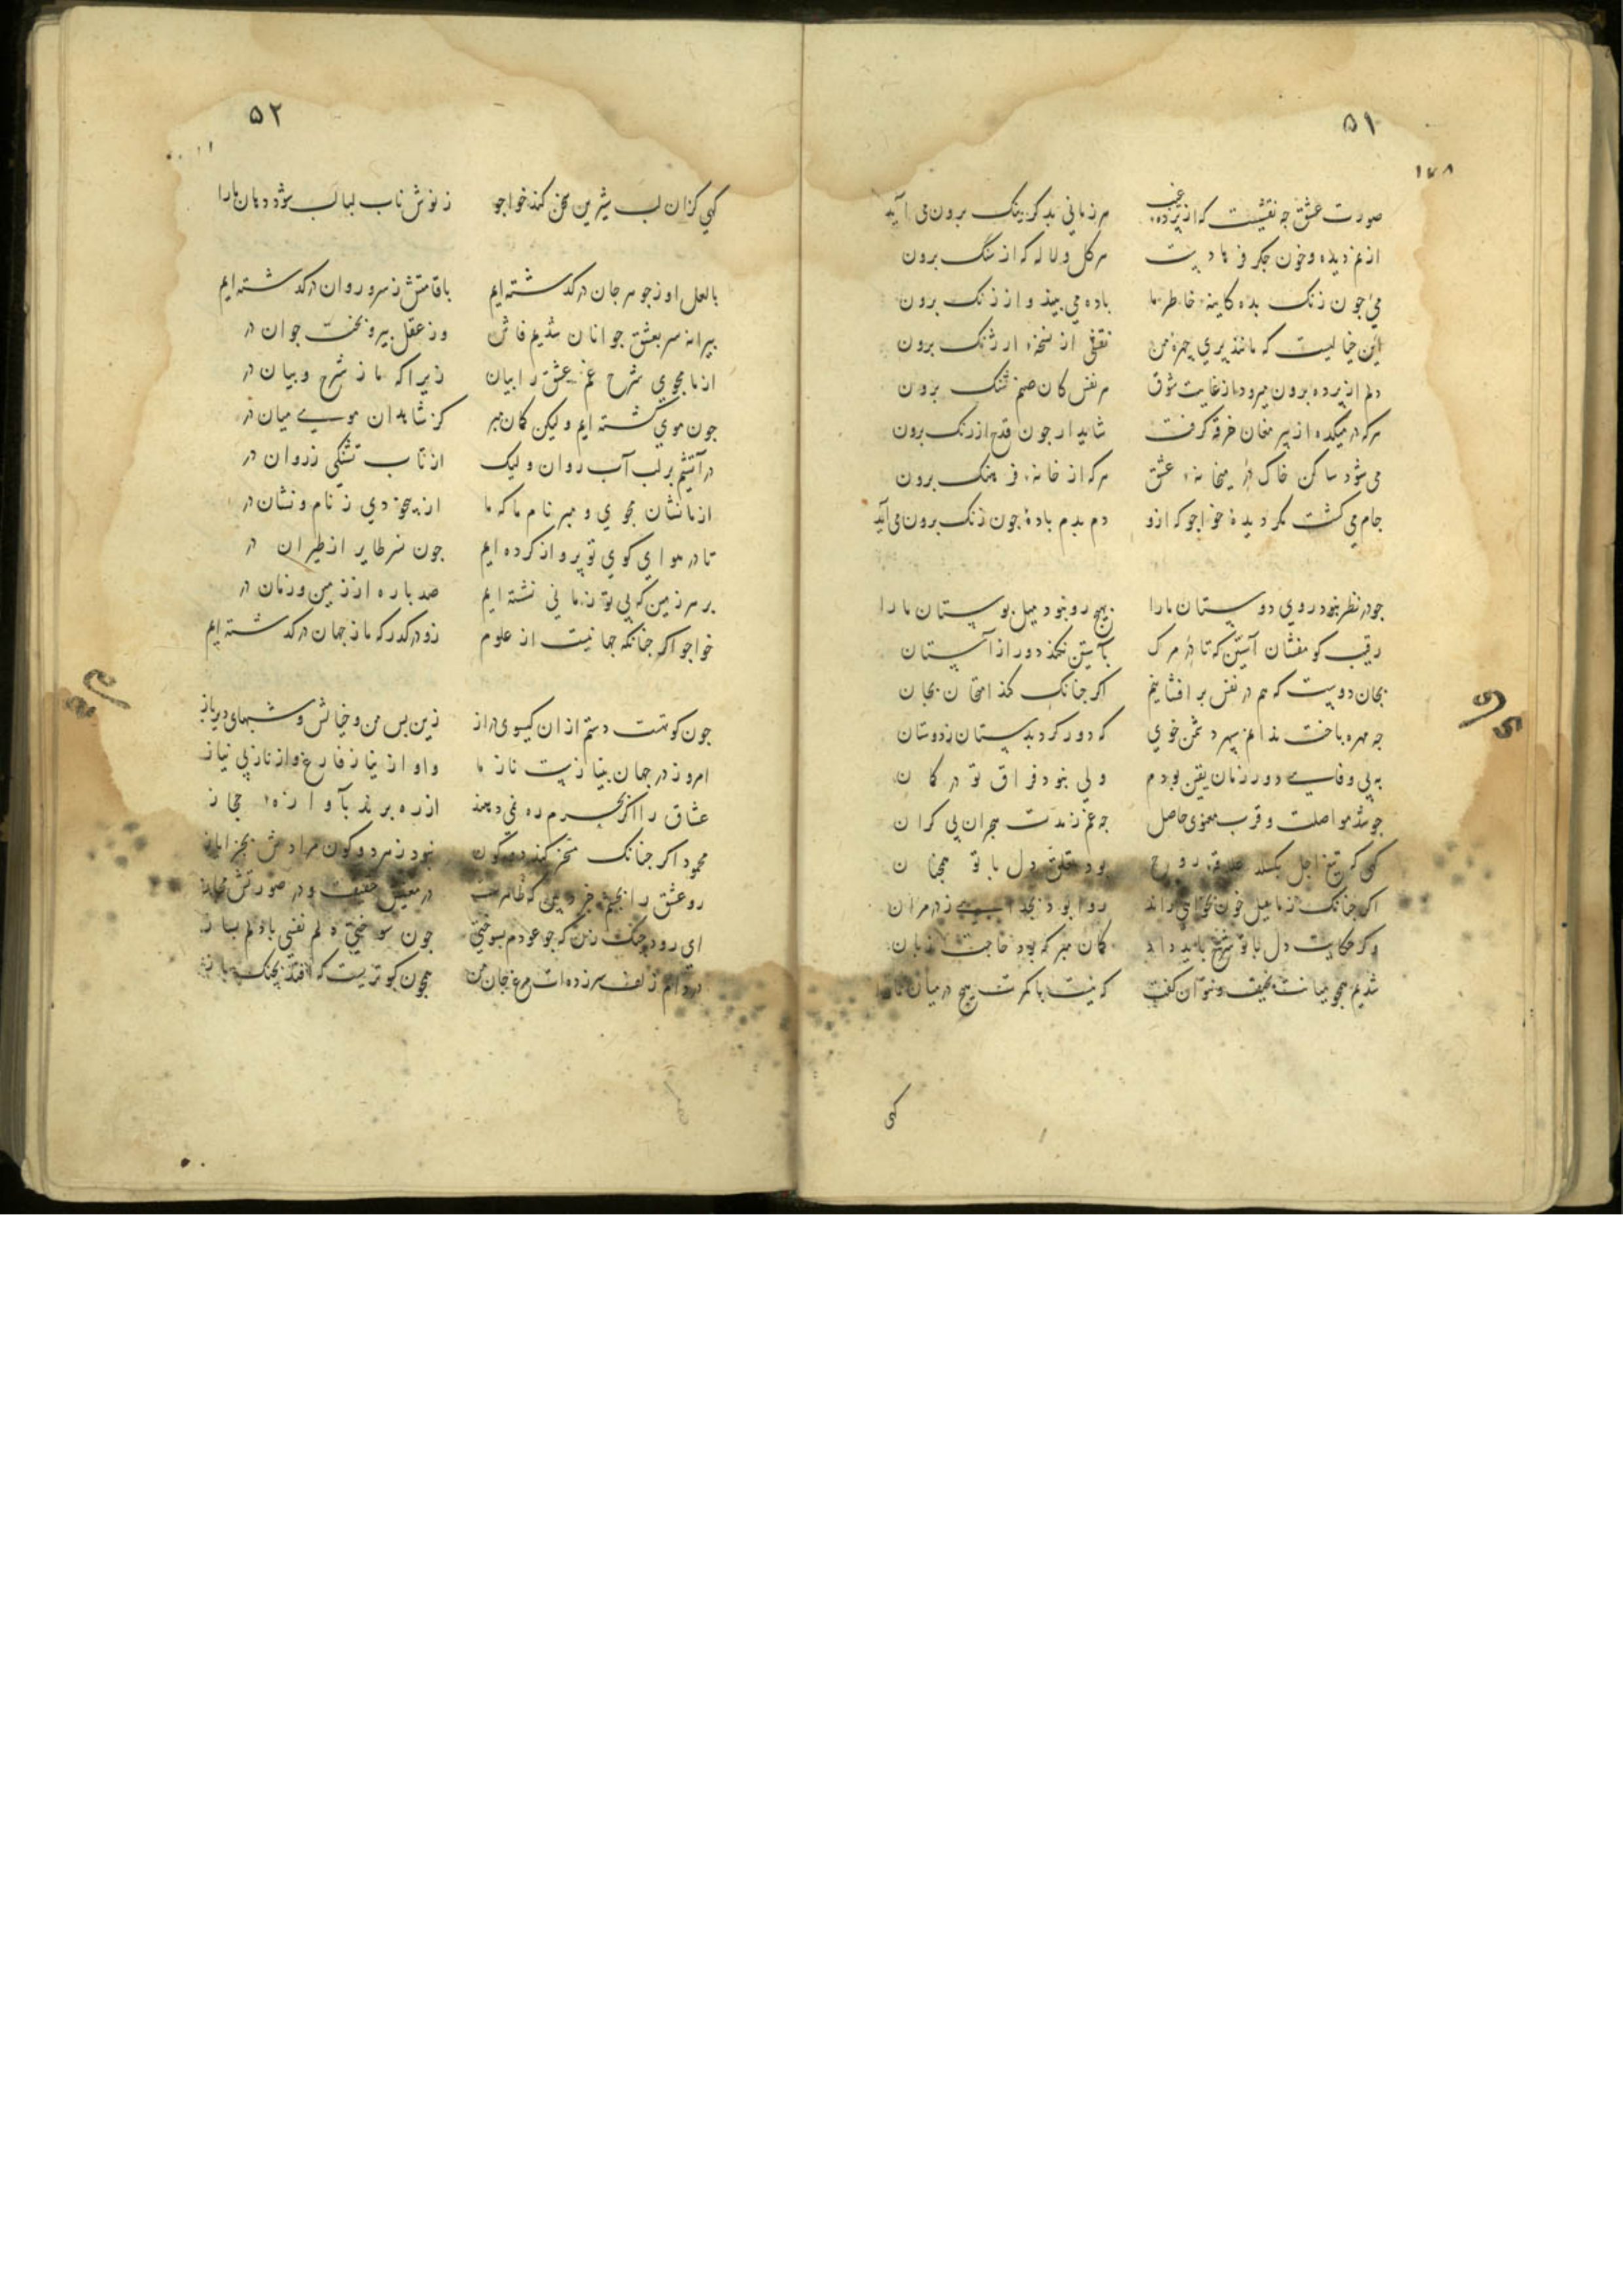 ۵۱
۱۷۸
صورت عشق چه نقشیست که از پرده غیب هر زمانی بدگر رنک برون می آید
از غم دیده و خون جکر فرهادست هر کل و لاله که از سنک برون
می جون زنک بده کاینه خاطر ما باده می بیند و از زنک برون
این خیالیست که مانند پری چهره من نقشی از نسخه ارژنک برون
دلم از پرده برون میرود از غایت شوق هر نفس کان صنم شنک برون
هرکه در میکده از پیر مغان خرقه کرفت شاید ار جون قدح از رنک برون
می شود ساکن خاک در میخانه عشق هرکه از خانه فرهنک برون
جام می کشت مکر دیده خواجو که ازو دم بدم باده جون زنک برون می آید
جو در نظر نبود روی دوستان ما را بهیچ رو نبود میل بوستان ما را
رقیب کو مفشان آستین که تا در مرک بآستین نکند دور از آستان
بجان دوست که هم در نفس بر افشانیم اکر جنانک کند امتحان بجان
چه مهره باخت ندانم سپهر دشمن خوی که دور کرد بدستان ز دوستان
به بی وفایی دور زمان یقین بودم ولی نبود فراق تو در کمان
جو شد مواصلت و قرب معنوی حاصل چه غم ز مدت هجران بی کران
کهی که تیغ اجل بکسلد علاقه روح بود تعلق دل با تو همچنان
اکر جنانک ز ما سیل خون بخواهی راند روا بود بجدایی ز در مران
وکر حکایت دل با تو شرح باید داد کمان مبر که بود حاجت زبان
شدیم همجو میانت نحیف و نتوان کفت که نیست با کمرت هیچ در میان ما را
کهی
۵۲
کهی کزان لب شیرین سخن کند خواجو ز نوش ناب لبالب شود دهان ما را
با لعل او ز جوهر جان در کذشته ایم با قامتش ز سرو روان در کذشته ایم
پیرانه سر بعشق جوانان شدیم فاش وز عقل پیر و بخت جوان در
از ما مجوی شرح غم عشق را بیان زیرا که ما ز شرح و بیان در
جون موی کشته ایم ولیکن کمان مبر کز شاهدان موی میان در
در آتشیم بر لب آب روان ولیک از تاب تشنکی ز روان در
از ما نشان مجوی و مبر نام ما که ما از بیخودی ز نام و نشان در
تا در هوای کوی تو پرواز کرده ایم جون نسر طایر از طیران در
بر هر زمین که بی تو زمانی نشسته ایم صد باره از زمین و زمان در
خواجو اکر جنانکه جهانیست از علوم زو درکذر که ما ز جهان در کذشته ایم
جون کوتهست دستم از ان کیسوی دراز زین پس من و خیالش و شبهای دیرباز
امروز در جهان بنیازیست ناز ما واو از نیاز فارغ و از ناز بی نیاز
عشاق را اکر بحرم ره نمی دهند از ره برند باوازه حجاز
محمود اکر جنانک مسخر کند دو کون نبود ز هر دو کون مرادش بجز ایاز
رو عشق را بچشم خرد بین که ظاهرست در معنیش حقیقت و در صورتش مجاز
ای رود چنک زن که جو عودم بسوختی جون سوختی دلم نفسی با دلم بساز
در دام زلف سرزده ات مرغ جان من همجون کبوتریست که افتد بچنک باز